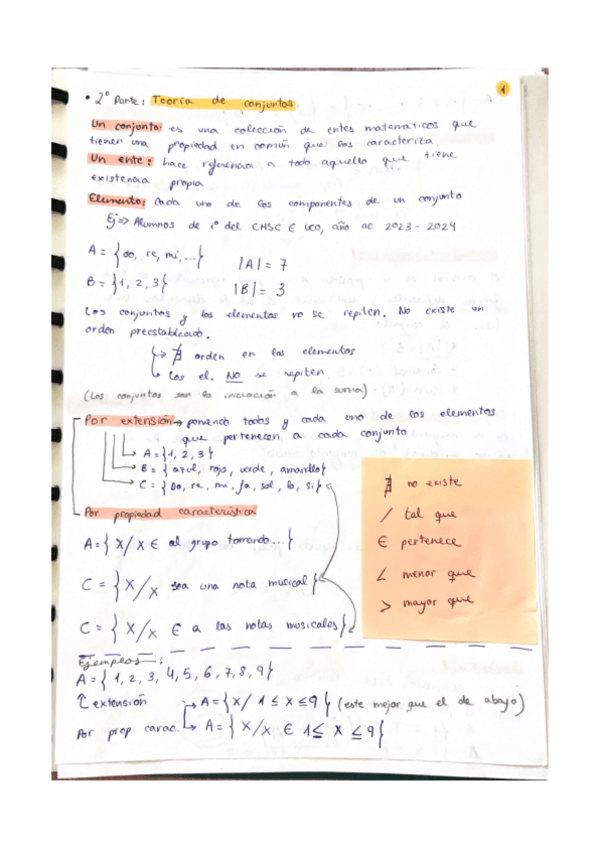 1
• 2º Parte: Teoría de conjuntos.
Un conjunto: es una colección de entes matemáticos que
tiener una propiedad en común que los caracteriza.
Un ente: hace referencia a todo aquello que tiene
existencia propia
Elemento: Cada uno de los componentes de un conjunto
Ej => Alumnos de 1º del ∈ UCO, año ac. 2023 - 2024
A = {do, re, mi, ...} |A| = 7
B = {1, 2, 3} |B| = 3
Los conjuntos y los elementos no se repiten. No existe un
orden preestablecido.
∄ orden en los elementos
Los el. NO se repiten
(Los conjuntos son la iniciación a la suma)
Por extensión → poniendo todos y cada uno de los elementos
que pertenecen a cada conjunto
A = {1, 2, 3}
B = {azul, rojo, verde, amarillo}
C = {Do, re, mi, fa, sol, la, si}
Por propiedad característica
A = {X/X ∈ al grupo tomando ...}
C = {X/X sea una nota musical}
C = {X/X ∈ a las notas musicales}
∄ no existe
/ tal que
∈ pertenece
< menor que
> mayor que
Ejemplos:
A = {1, 2, 3, 4, 5, 6, 7, 8, 9}
↑ extensión → A = {X/ 1 ≤ X ≤ 9} (este mejor que el de abajo)
Por prop. carac. → A = {X/X ∈ 1 ≤ X ≤ 9}